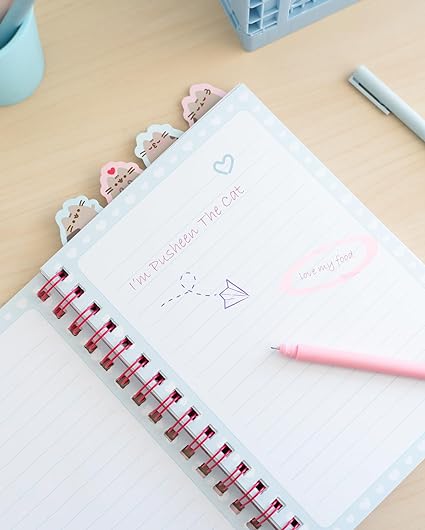 I'm Pusheen The Cat
love my food